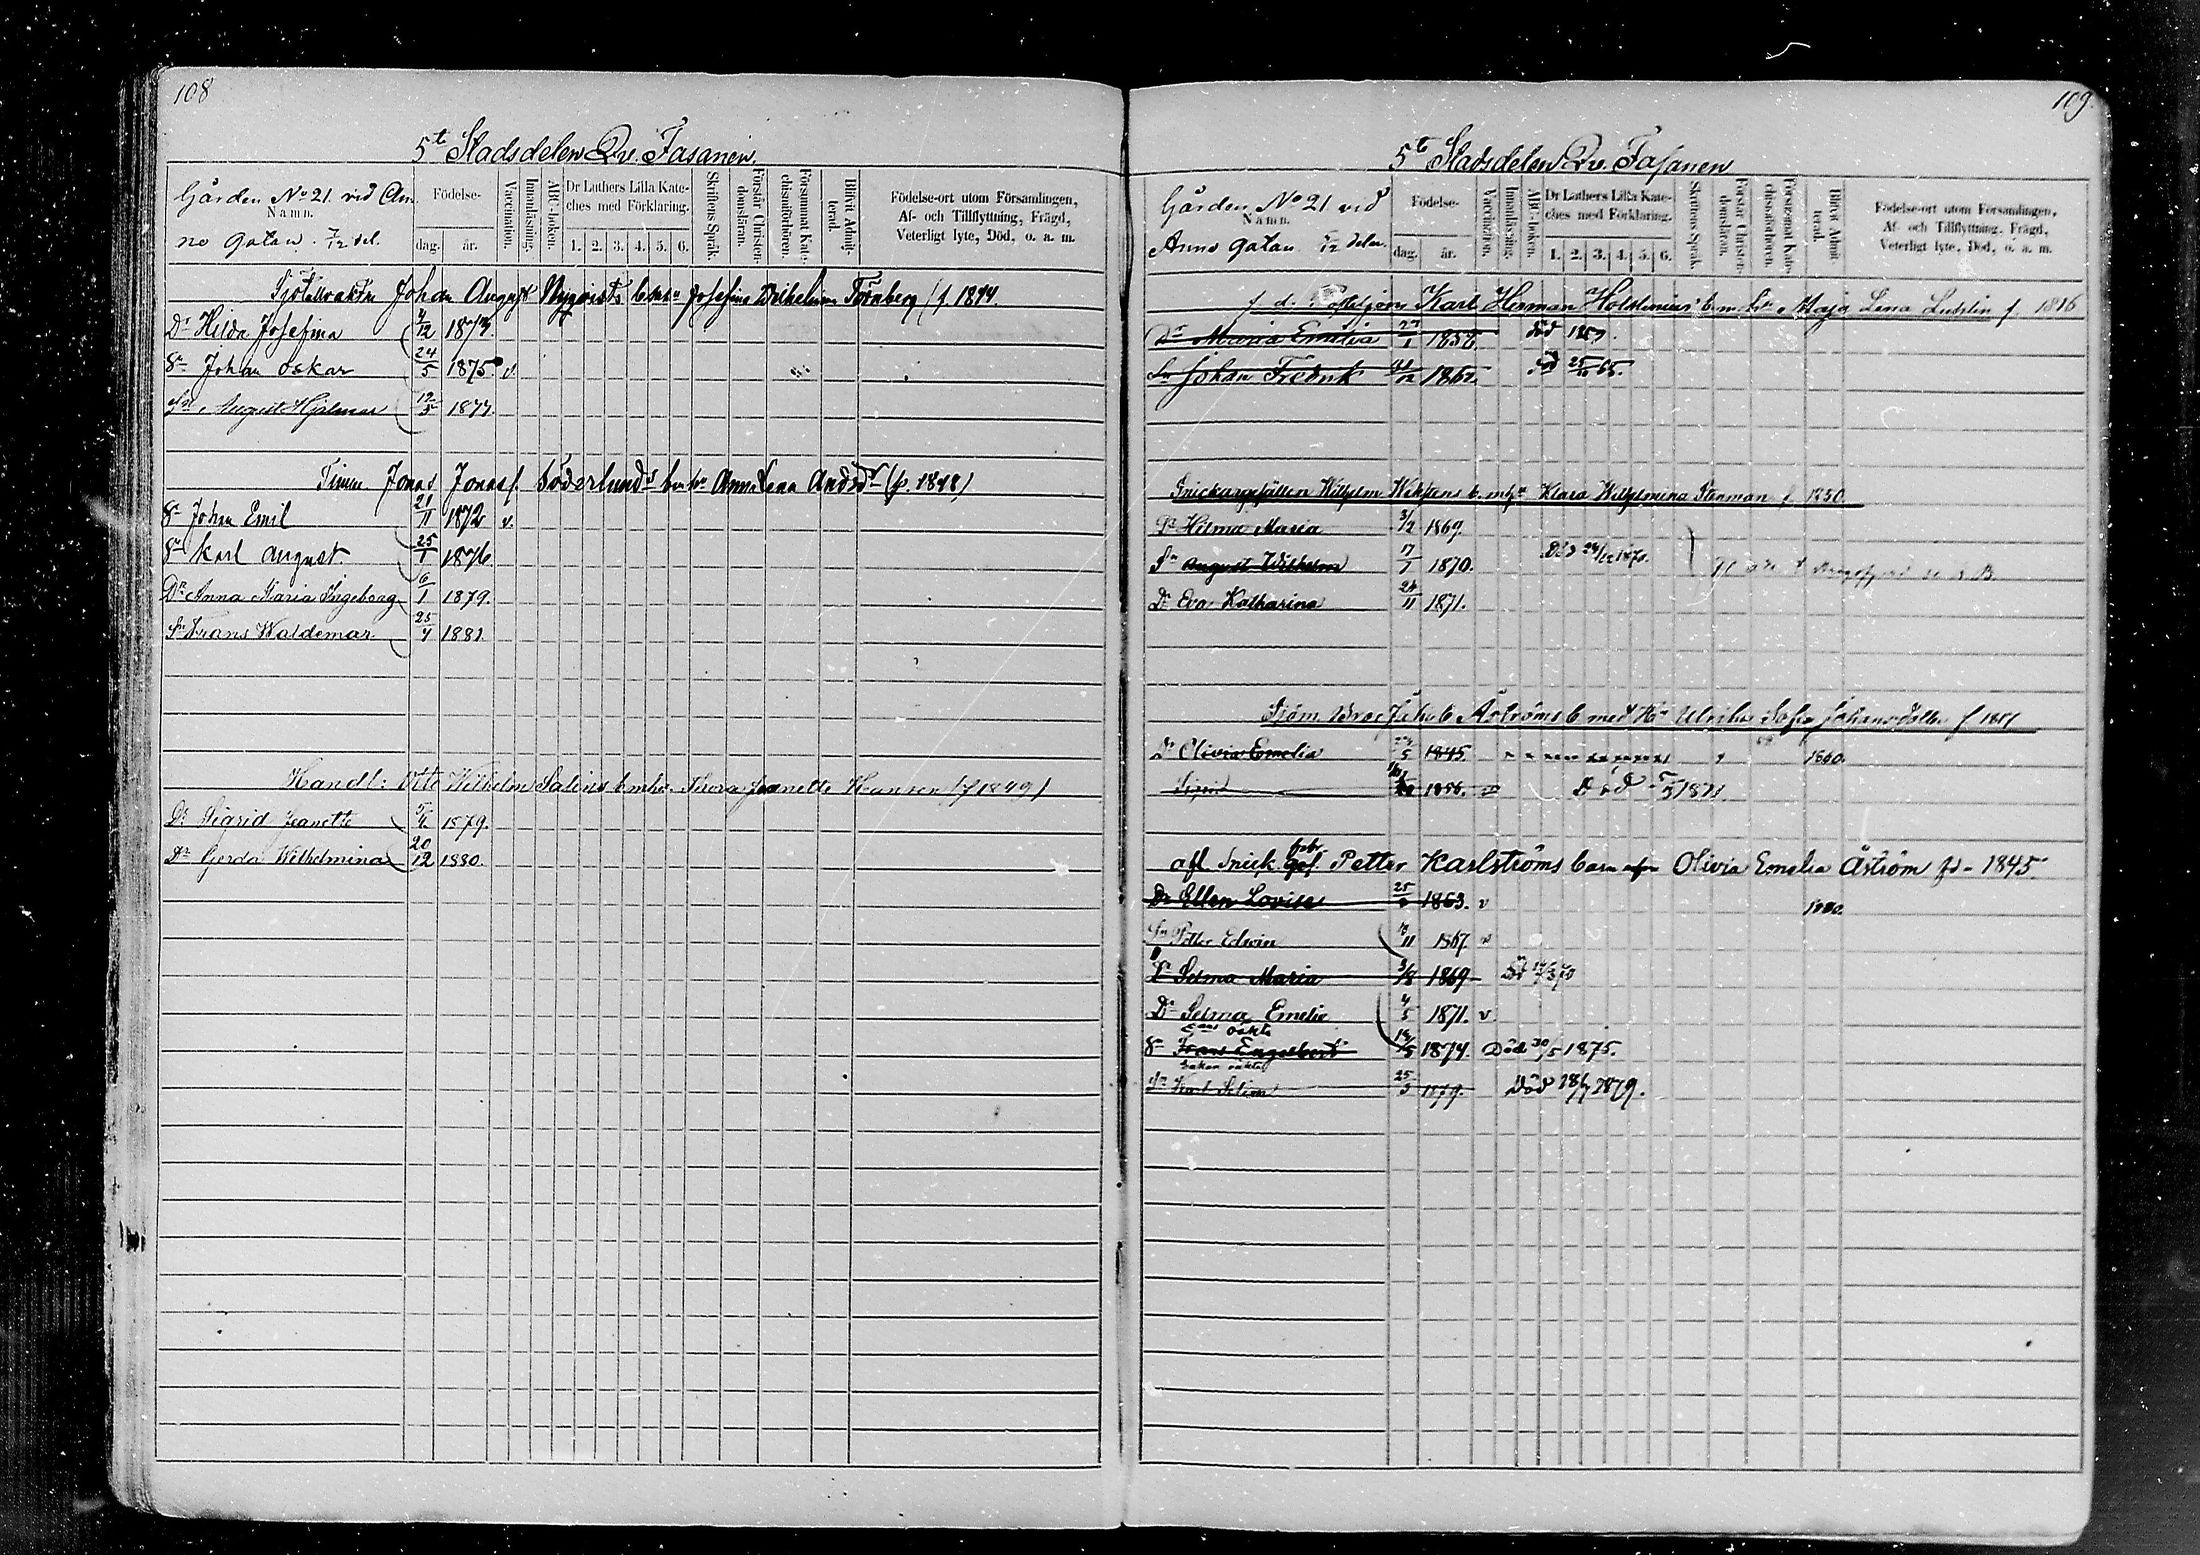 108
5t Stadsdelen Qv. Fasanen.
Gården No 21. vid An-
Namn.
no gatan. 7/12 del.
Födelse-
dag. år.
Vaccination.
Innanläsning.
ABC-boken.
Dr Luthers Lilla Kate-
ches med Förklaring.
1. 2. 3. 4. 5. 6.
Skriftens Språk.
Förstår Christen-
domsläran.
Försummat Kate-
chismiförhören.
Blivit Admit-
terad.
Födelse-ort utom Församlingen,
Af- och Tillflyttning, Frägd,
Veterligt lyte, Död, o. a. m.
Johan August Nyqvists b. m. hu Josefina Wilhelmina Törnberg (f 1844.
Dr Hilda Josefina 4/12 1873.
Sn Johan Oskar 24/5 1875. v.
Sn August Hjalmar 12/5 1877.
Timm. Jonas Jonass. Söderlunds b m hu Anna Lena Andsdr (f. 1848)
Sn Johan Emil 21/11 1872 v.
Sn Karl August. 25/1 1876.
Dr Anna Maria Ingeborg 6/1 1879.
Sn Frans Waldemar 25/4 1881.
Handl: Otto Wilhelm Salins b m hu Thora Jeanette Hansen (f 1849)
Dr Sigrid Jeanette 1879.
Dr Gerda Wilhelmina 20/12 1880.
109.
5t Stadsdelen Qv. Fasanen
Gården No 21 vid
Namn.
Anno gatan. 7/12 delen
Födelse-
dag. år.
Vaccination.
Innanläsning.
ABC-boken.
Dr Luthers Lilla Kate-
ches med Förklaring.
1. 2. 3. 4. 5. 6.
Skriftens Språk.
Förstår Christen-
domsläran.
Försummat Kate-
chismiförhören.
Blivit Admit-
terad.
Födelse-ort utom Församlingen,
Af- och Tillflyttning, Frägd,
Veterligt lyte, Död, o. a. m.
f. d. Karl Herman Holstenius' b. m. hu Maja Lena f. 1816
Dr Maria Emilia 27/1 1858. död
Sn Johan Fredrik 1862. död 65.
Snickargesällen Wilhelm b. m hu Klara Wilhelmina Stenman f 1850.
Dr Hilma Maria 3/2 1869.
Sn August Wilhelm 17/1 1870. Död 24/12 1870.
Dr Eva Katharina 24/11 1871.
Jakob Åströms b med Hu Ulrika Sofia Johansdotter f
Dr Olivia Emelia 1845 1860.
1856. Död 1871.
afl. Snick. Petter Karlströms barn Olivia Emelia Åström fd. 1845.
Dr Ellen Lovisa 1863. v 1880.
Sn Petter Edwin 1867. v
Dr Selma Maria 3/8 1869 Död 70
Dr Selma Emelie 4/5 1871. v
oäkta
Sn Frans Engelbert 1874. Död 30/5 1875.
oäkta
Sn Karl 25/3 1879. Död 1879.